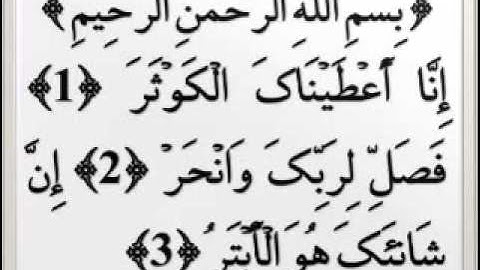 ﴿بِسْمِ اللهِ الرَّحْمنِ الرَّحِيمِ﴾
إِنَّا أَعْطَيْنَاکَ الْکَوْثَرَ ﴿1﴾
فَصَلِّ لِرَبِّکَ وَانْحَرْ ﴿2﴾ إِنَّ
شَانِئَکَ هُوَ الْأَبْتَرُ ﴿3﴾